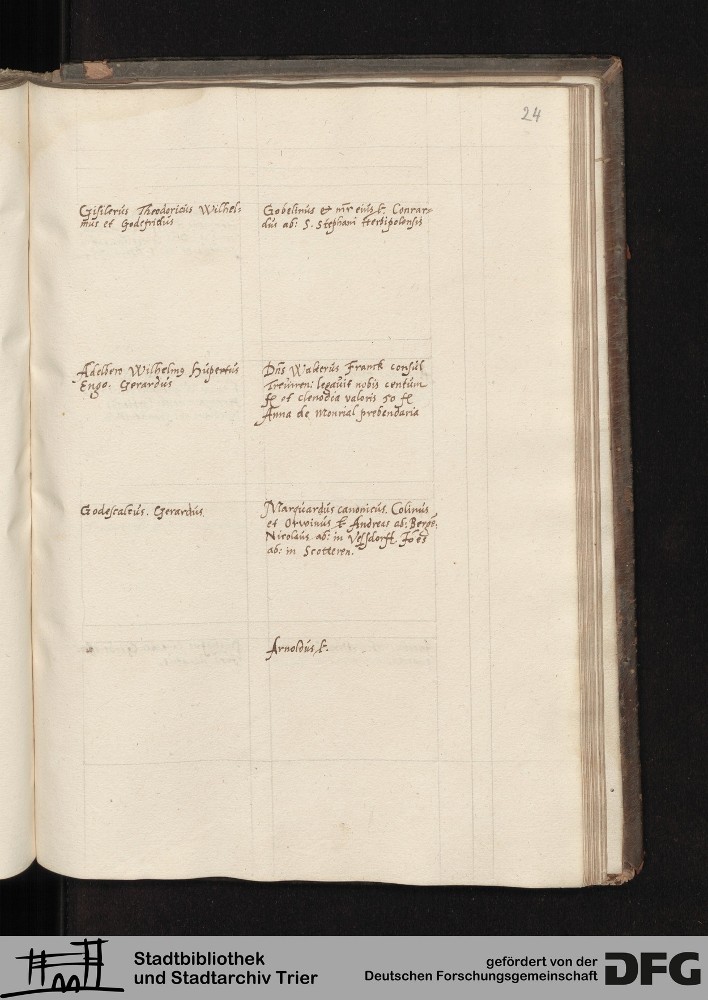 24
Gisilerus Theodoricus Wilhel-
mus et Godefridus
Gobelinus et mr eius k. Conrar-
dus ab: S. Stephani Herbipolensis
Adelbero Wilhelmus Hupertus
Engo. Gerardus
Dns Walterus Franck consul
Treuiren: legauit nobis centum
fl et clenodia valoris 50 fl
Anna de Monrial prebendaria
Godescalcus. Gerardus.
Marquardus canonicus. Colinus
et Ortwinus k Andreas ab: Berge.
Nicolaus ab: in Usfdorff. Joes
ab: in Scotteren.
Arnoldus k.
Stadtbibliothek
und Stadtarchiv Trier
gefördert von der
Deutschen Forschungsgemeinschaft
DFG